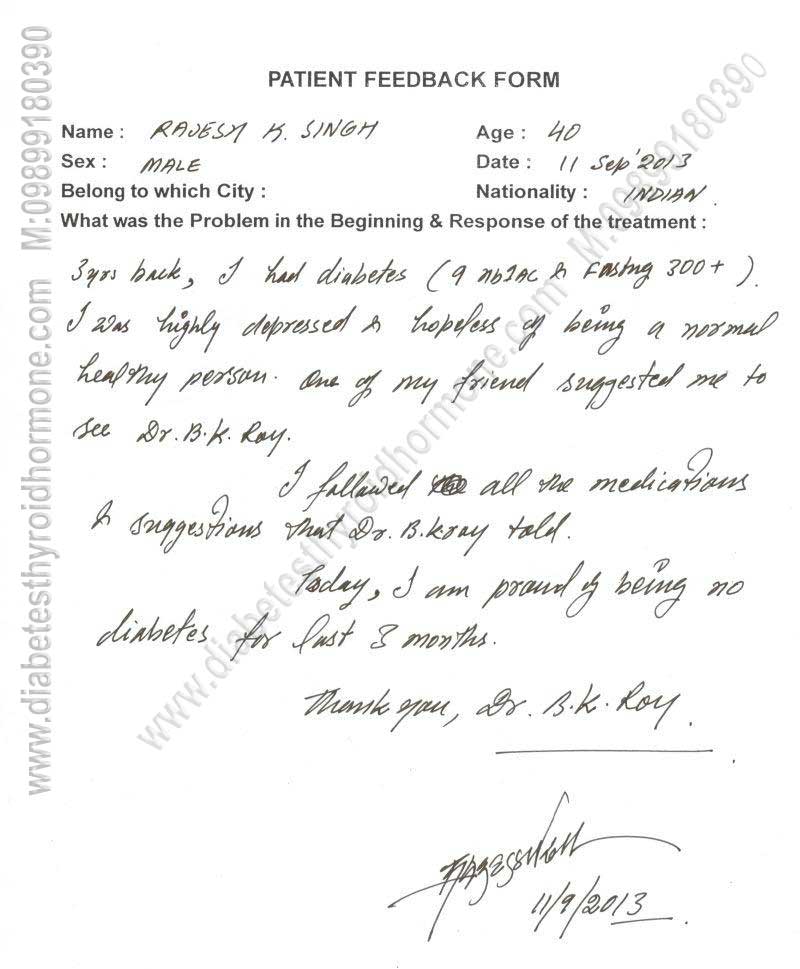 PATIENT FEEDBACK FORM
Name : RAJESH K. SINGH Age : 40
Sex : MALE Date : 11 Sep' 2013
Belong to which City : Nationality : INDIAN.
What was the Problem in the Beginning & Response of the treatment :
3yrs back, I had diabetes (9 Hb1AC & Fasing 300+).
I was highly depressed & hopeless of being a normal
healthy person. One of my friend suggested me to
see Dr. B.K. Roy.
I followed all the medications
& suggestions that Dr. B.K Roy told.
Today, I am proud of being no
diabetes for last 3 months.
Thank you, Dr. B.K. Roy.
11/9/2013
www.diabetesthyroidhormone.com M:09899180390
www.diabetesthyroidhormone.com M:09899180390